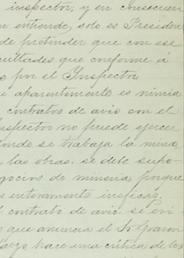 inspector, y en consecuen
n entiende, solo es Preside
de pretender que con ese
cultades que conforme á
s por el Inspector
e aparentemente es nimia
contratos de avio con el
spector no puede ejercer
onde se trabaja la mina
las obras. se debe supo
gocios de mineria, porque
es enteramente ineficaz
contrato de avio. se ori
que anuncia el Sr.
luego hace una crítica de los